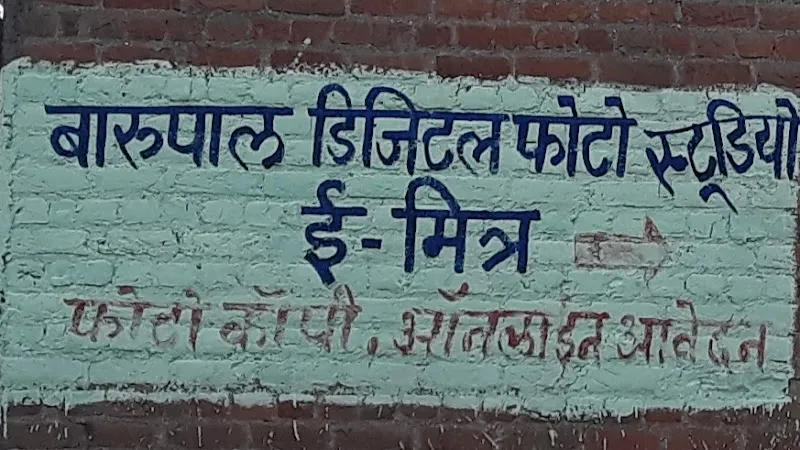 बारुपाल डिजिटल फोटो स्टूडियो
ई-मित्र
फोटो कॉपी, ऑनलाईन आवेदन